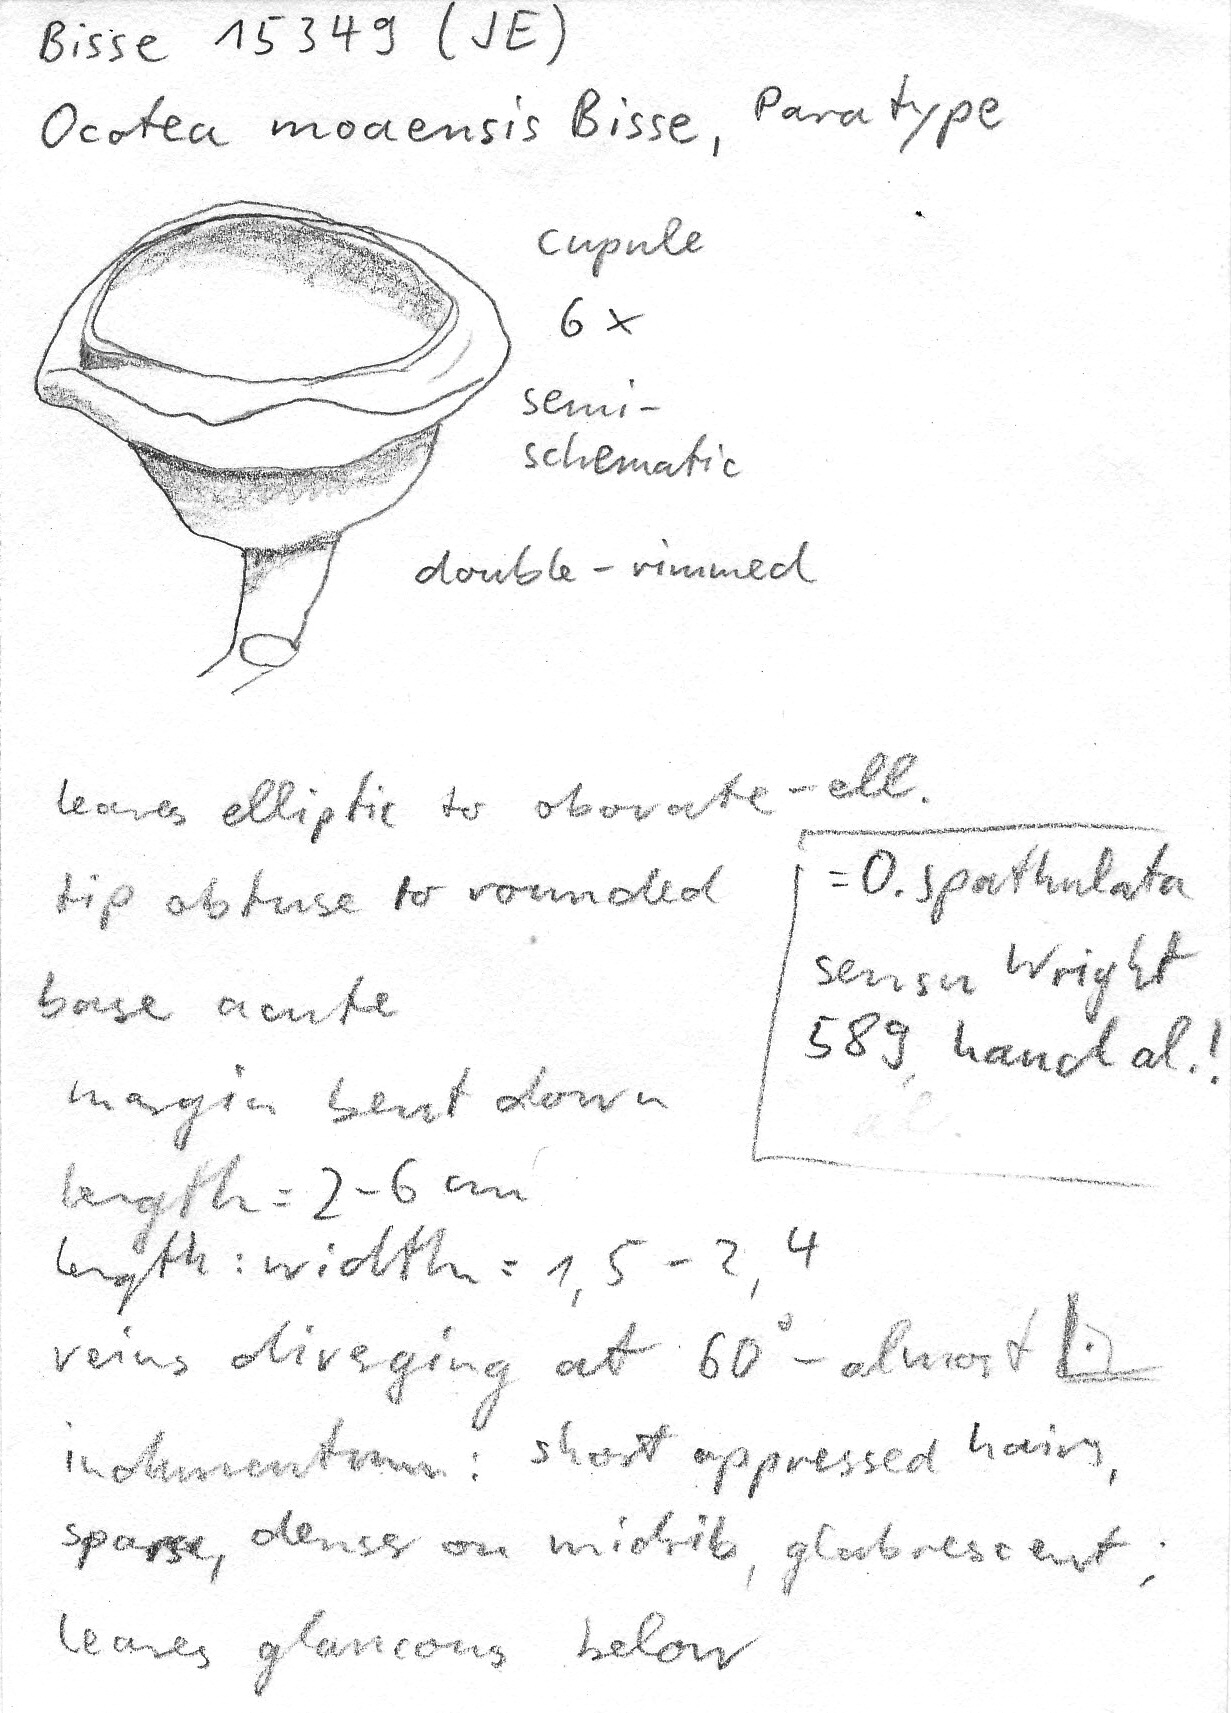 Bisse 15349 (JE)
Ocotea moaensis Bisse, Paratype
cupule
6 x
semi-
schematic
double-rimmed
leaves elliptic to obovate-ell.
tip obtuse to rounded
base acute
margin bent down
length = 2-6 cm
length : width = 1,5 - 2,4
veins diverging at 60° - almost
indumentum: short appressed hairs,
sparse, denser on midrib, glabrescent;
leaves glaucous below
= O. spathulata
sensu Wright
589, hand al.!